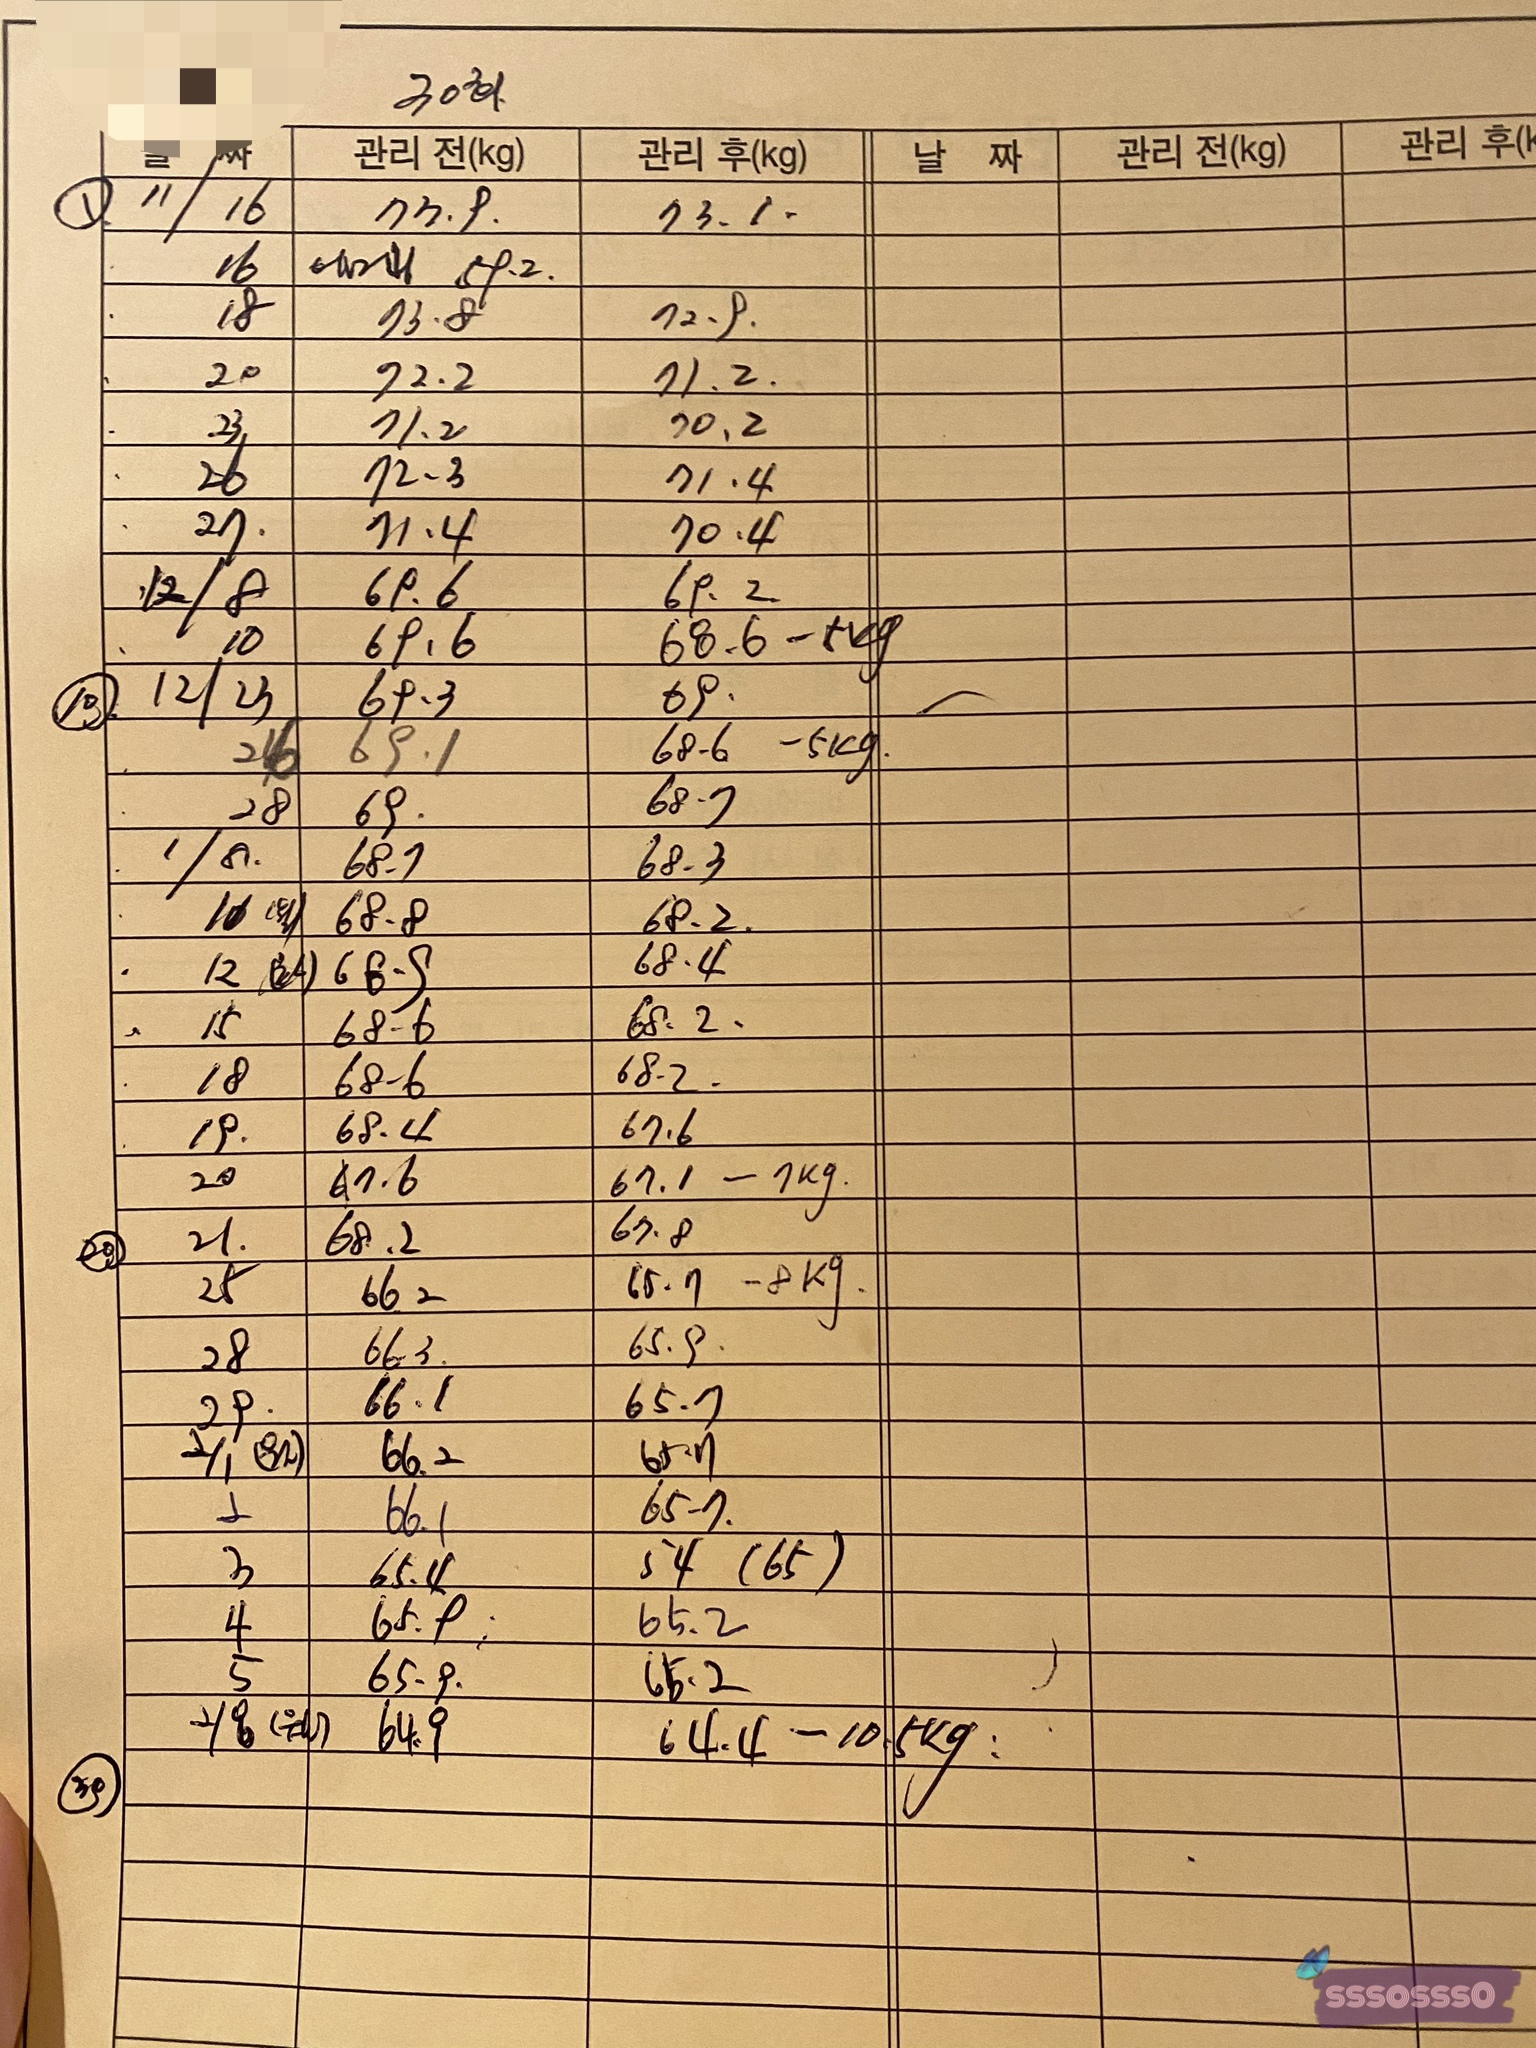 30회
날 짜 관리 전(kg) 관리 후(kg) 날 짜 관리 전(kg) 관리 후(k
① 11/16 73.9. 73.1.
16 59.2.
18 73.8 72.9.
20 72.2 71.2.
23 71.2 70.2
26 72.3 71.4
27. 71.4 70.4
12/8 69.6 69.2
10 69.6 68.6 -5kg
⑩ 12/23 69.3 69.
26 69.1 68.6 -5kg.
28 69. 68.7
1/ 68.7 68.3
10 68.8 68.2.
12 68.9 68.4
15 68.6 68.2.
18 68.6 68.2.
19. 68.4 67.6
20 67.6 67.1 -7kg.
⑳ 21. 68.2 67.8
25 66.2 65.7 -8kg.
28 66.3. 65.9.
29. 66.1 65.7
2/1 66.2 65.7
2 66.1 65.7.
3 65.4 54 (65)
4 65.9 65.2
5 65.9. 65.2
64.9 64.4 -10.5kg
㉚
sssossso